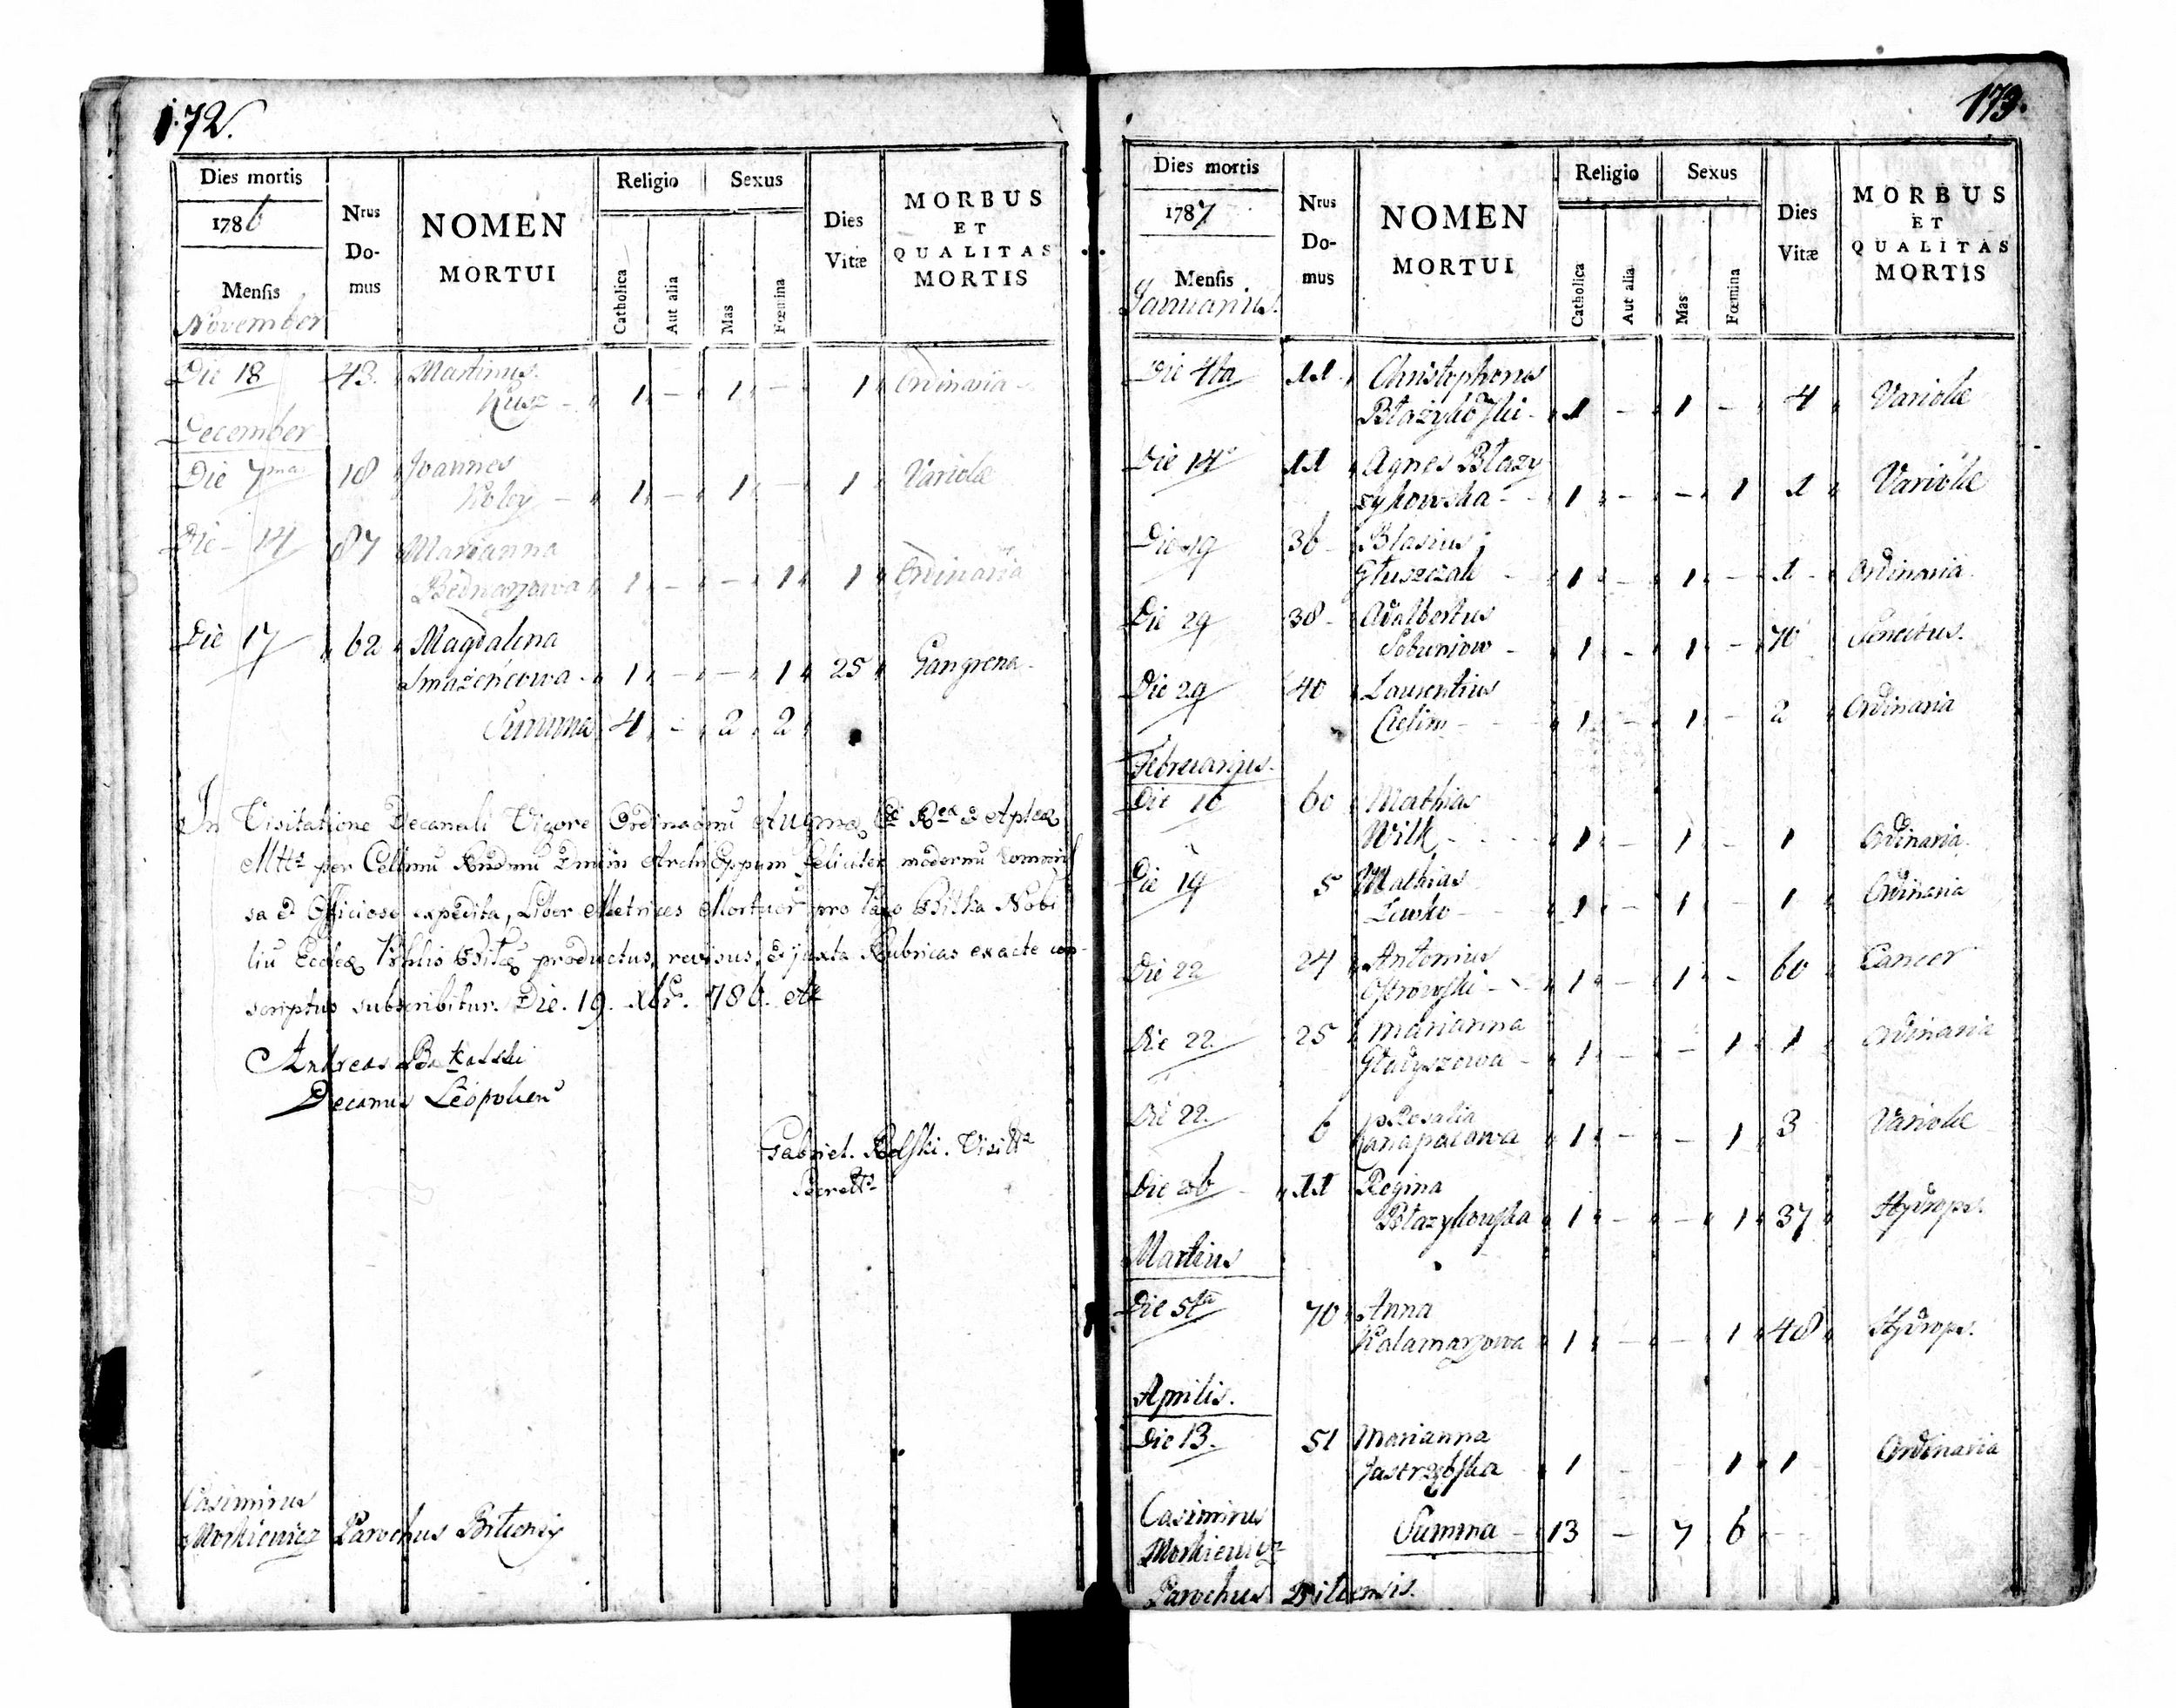 172.
Dies mortis
1786
Mensis
November
Nrus
Do-
mus
NOMEN
MORTUI
Religio
Sexus
Catholica
Aut alia
Mas
Fœmina
Dies
Vitæ
MORBUS
ET
QUALITAS
MORTIS
Die 18 43. Martinus
Kusz - 1 - 1 - 1 Ordinaria
December
Die 7ma 18 Joannes
Koley - 1 - 1 - 1 Variolæ
Die 14 87 Marianna
Bednarzowa 1 - - 1 1 Ordinaria
Die 17 62 Magdalena
Smażeńcowa - 1 - - 1 25 Gangrena
Summa 4 - 2 2
In Visitatione Decanali Vigore
per Archi Eppum feliciter modernu
sa & Officiose expedita, Liber Metrices Mortuor pro
productus, revisus, & juxta Rubricas exacte con-
scriptus subscribitur. Die. 19. Xbr. 786.
Andreas
Decanus Leopolien
Gabriel.
Casimirus
Morkiewicz Parochus
173.
Dies mortis
1787
Mensis
Januarius.
Nrus
Do-
mus
NOMEN
MORTUI
Religio
Sexus
Catholica
Aut alia
Mas
Fœmina
Dies
Vitæ
MORBUS
ET
QUALITAS
MORTIS
Die 4ta 11 Christophorus
Błażykowski - 1 - 1 - 4 Variolæ
Die 14 11 Agnes Błazy
zykowska - 1 - - 1 1 Variolæ
Die 19 36 Blasius
Głuszczak - 1 - 1 - 1 Ordinaria
Die 29 38 Adalbertus
- 1 - 1 - 70 Senectus.
Die 29 40 Laurentius
Cielim - 1 - 1 - 2 Ordinaria
Februarius.
Die 16 60 Mathias
Wilk - 1 - 1 - 1 Ordinaria
Die 19 5 Mathias
Lewko - 1 - 1 - 1 Ordinaria
Die 22 24 Antonius
Ostrowski - 1 - 1 - 60 Cancer
Die 22 25 Marianna
Gładyszowa - 1 - - 1 1 Ordinaria
Die 22. 6 Rosalia
1 - - 1 3 Variolæ
Die 26 11 Regina
Błazykowska 1 - - 1 37 Hydrops.
Martius
Die 5ta 70 Anna
Kalamarzowa 1 - - 1 48 Hydrops.
Aprilis.
Die 13. 51 Marianna
Jastrzębska 1 - 1 1 Ordinaria
Casimirus
Morkiewicz
Summa - 13 - 7 6
Parochus Bilcensis.